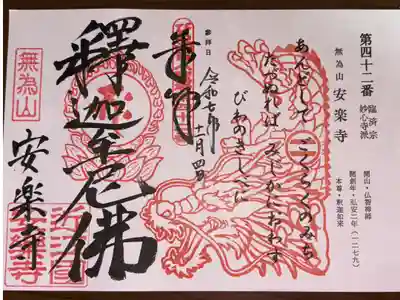 第四十二番
臨済宗
妙心寺派
無為山 安楽寺
開山・仏智禅師
開創年・弘安二年(一二七九)
本尊・釈迦如来
あんどして ごくらくのみち
たづぬれば みじかにおわす
びわのきしべに
参拝日 令和七年 十一月四日
奉拝
釋迦牟尼佛
無為山
安楽寺